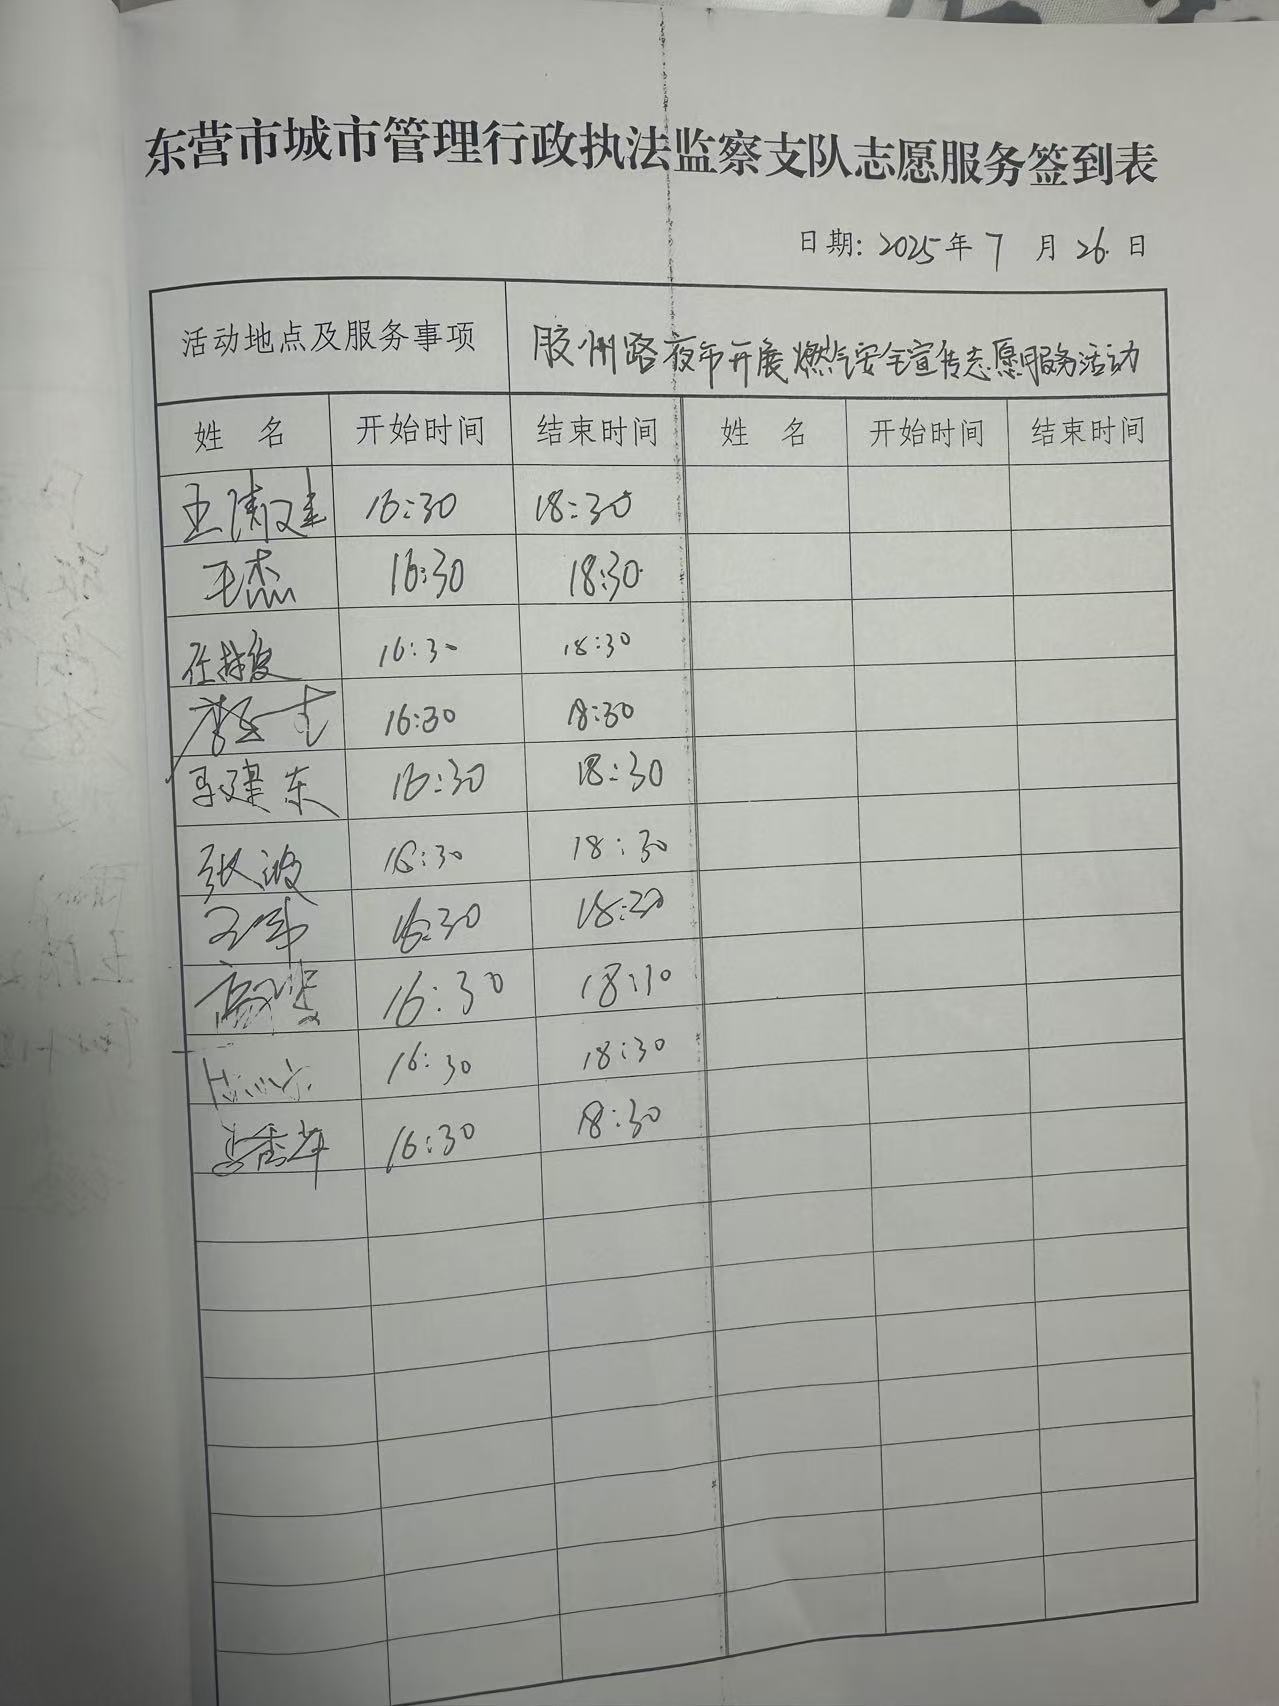 东营市城市管理行政执法监察支队志愿服务签到表
日期: 2025年 7 月 26 日
活动地点及服务事项 胶州路夜市开展燃气安全宣传志愿服务活动
姓 名 开始时间 结束时间 姓 名 开始时间 结束时间
16:30 18:30
毛杰 16:30 18:30
16:30 18:30
16:30 18:30
马建东 16:30 18:30
张波 16:30 18:30
王伟 16:30 18:30
16:30 18:30
16:30 18:30
16:30 18:30